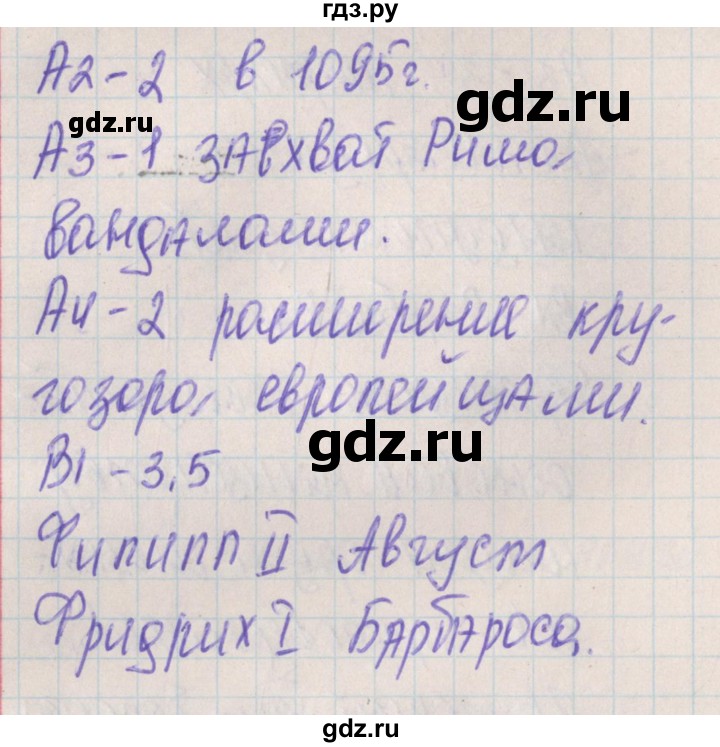 гдз.ру
А2-2 в 1095г.
gdz.ru
gdz.ru
А3-1 захват Рима
вандалами.
А4-2 расширение кру-
гозора европейцами.
gdz.ru
В1-3,5
Филипп II Август
gdz.ru
Фридрих I Барбароса.
gdz.ru